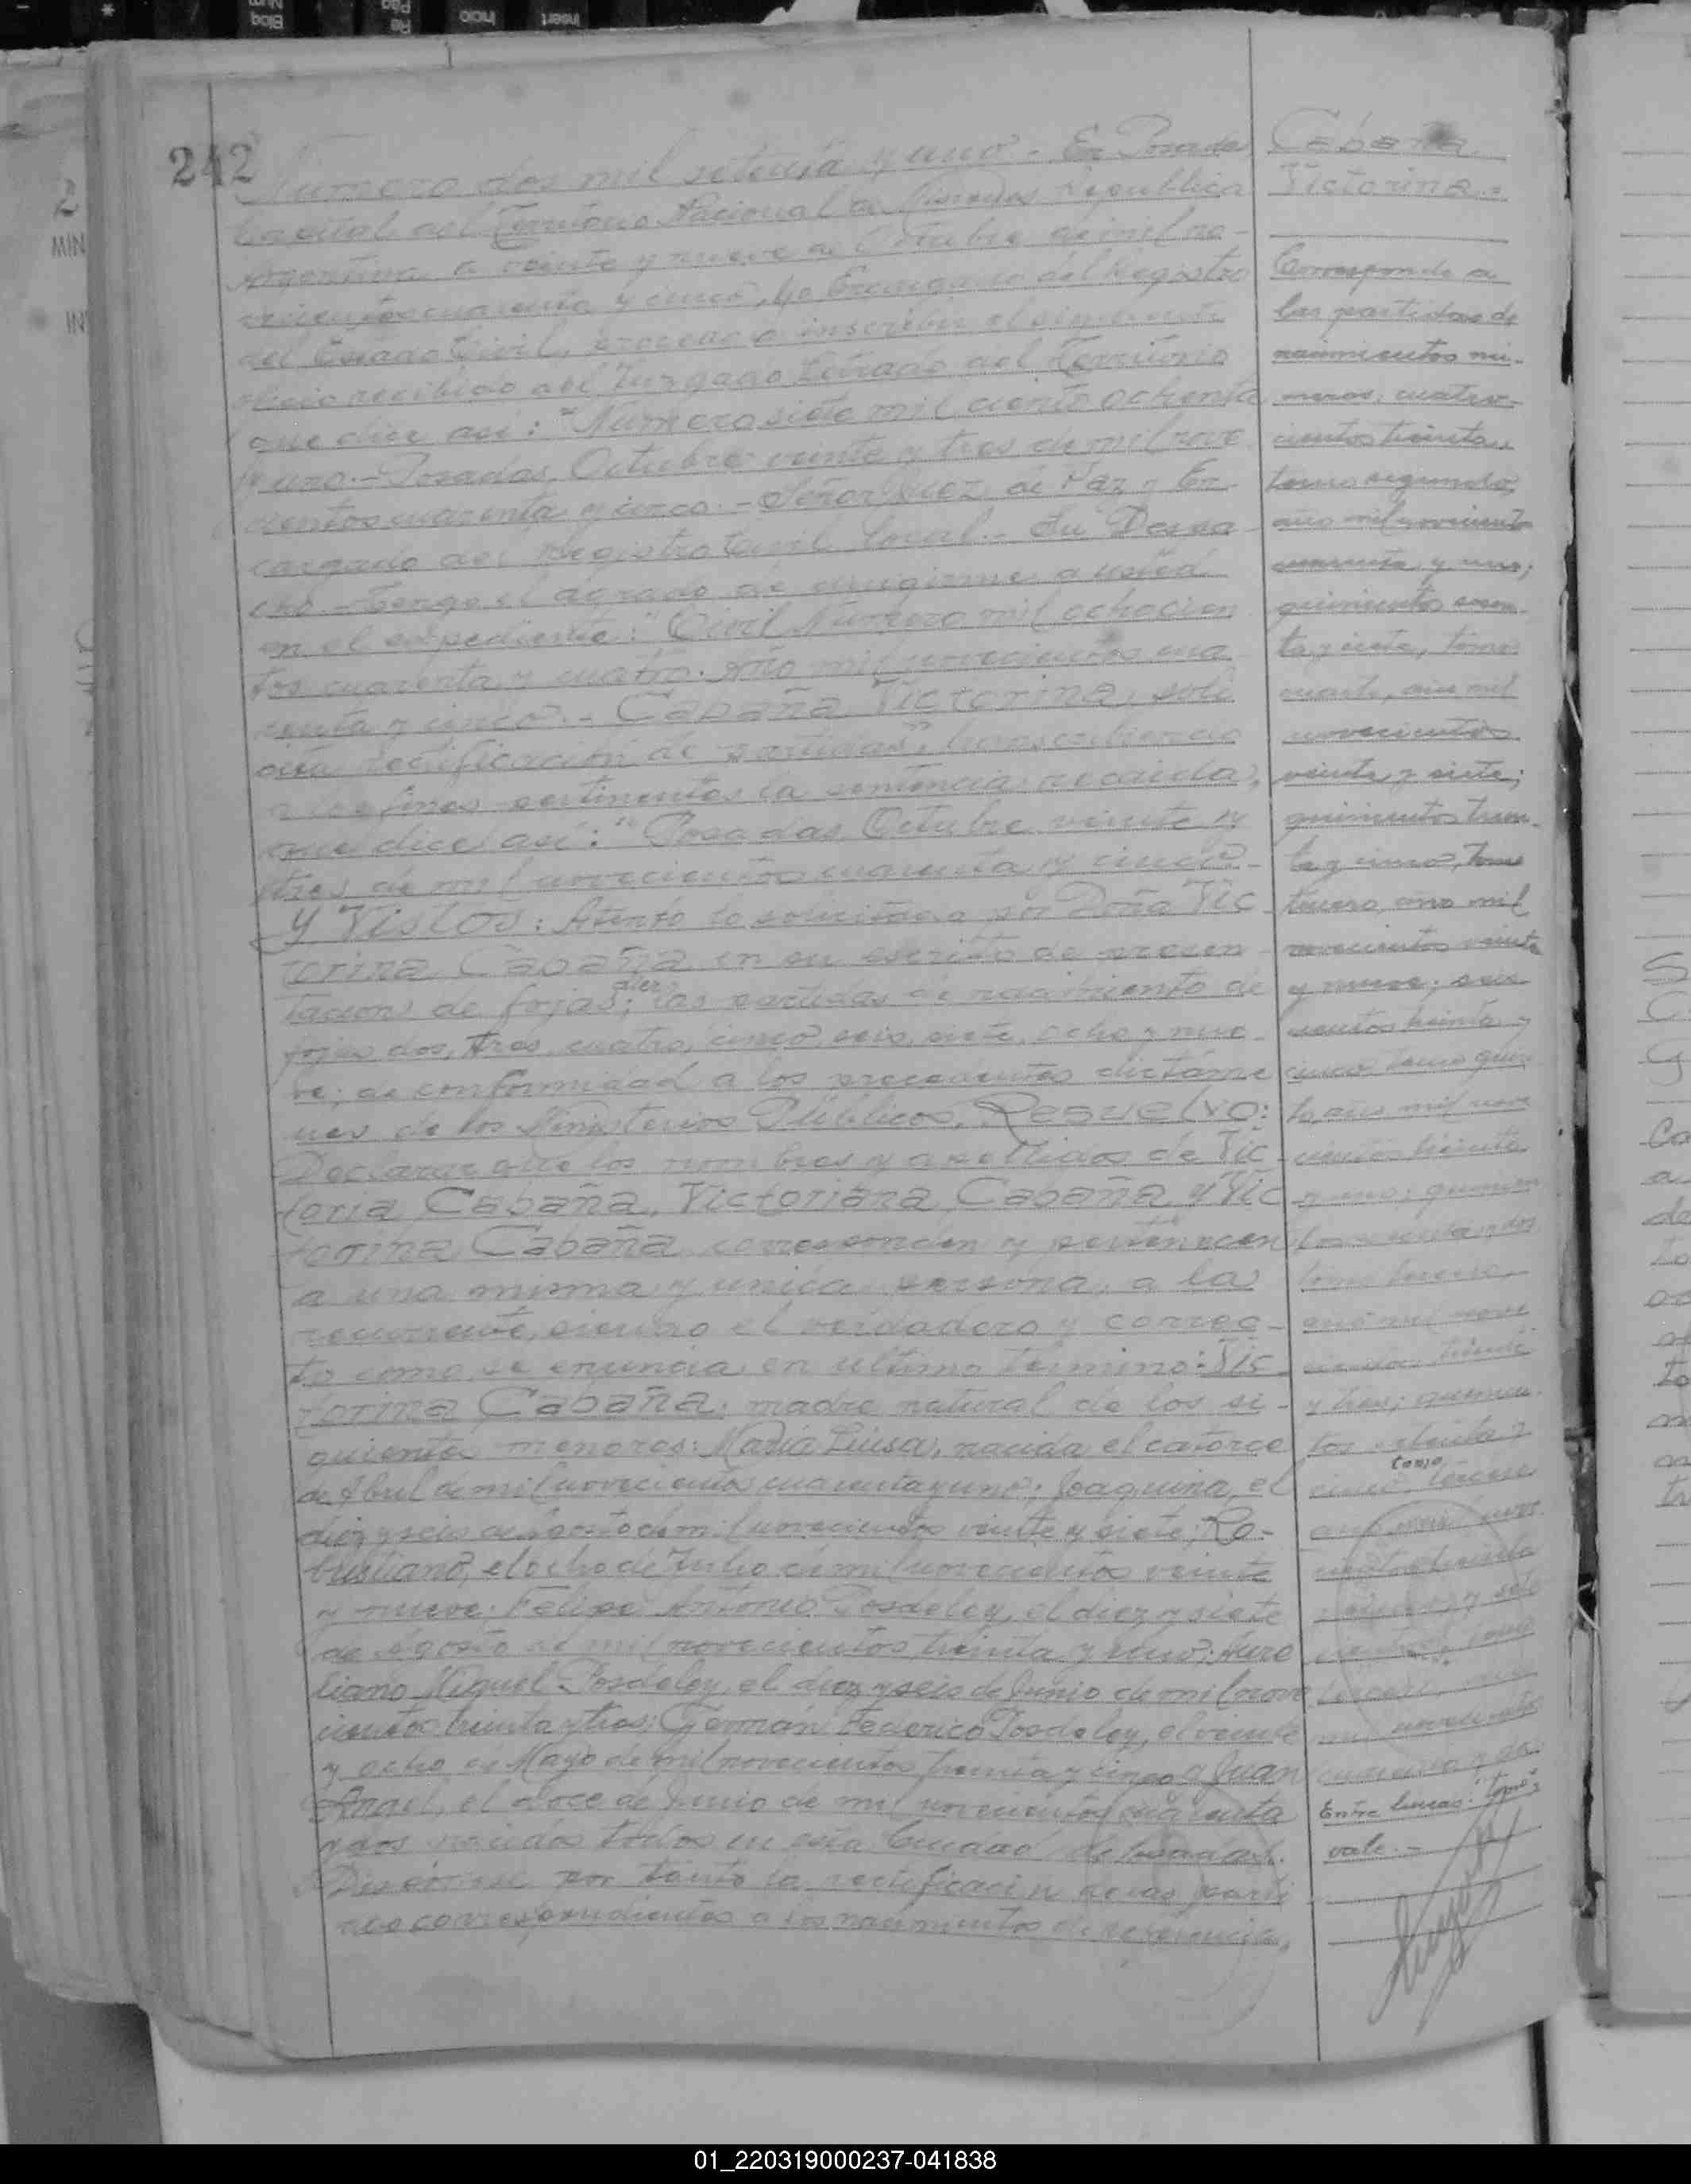 242
Numero dos mil setenta y uno - En Posadas
Capital del Territorio Nacional de Misiones Republica
Argentina a veinte y nueve de Octubre de mil no-
vecientos cuarenta y cinco, Yo Encargado del Registro
del Estado Civil, procedo a inscribir el siguiente
oficio recibido del Juzgado Letrado del Territorio
que dice asi: "Numero siete mil ciento ochenta
y uno.- Posadas, Octubre veinte y tres de mil nove
cientos cuarenta y cinco.- Señor Juez de Paz y En-
cargado del Registro Civil Local.- Su Despa
cho.- Tengo el agrado de dirigirme a usted
en el expediente: "Civil Número mil ochocien
tos cuarenta y cuatro. Año mil novecientos cua
renta y cinco.- Cabaña Victorina, soli
cita rectificación de partidas", transcribiendo
a los fines pertinentes la sentencia recaida,
que dice asi: "Posadas, Octubre veinte y
tres de mil novecientos cuarenta y cinco.-
Y Vistos: Atento lo solicitado por Doña Vic
torina Cabaña en su escrito de presen-
diez
tacion de fojas; las partidas de nacimiento de
fojas dos, tres, cuatro, cinco, seis, siete, ocho y nue-
ve; de conformidad a los precedentes dictáme
nes de los Ministerios Públicos, Resuelvo:
Declarar que los nombres y apellidos de Vic-
toria Cabaña, Victoriana Cabaña y Vic
torina Cabaña corresponden y pertenecen
a una misma y unica persona, a la
recurrente, siendo el verdadero y correc-
to como se enuncia en ultimo termino: Vic
torina Cabaña; madre natural de los si-
guientes menores: Maria Luisa, nacida el catorce
de Abril de mil novecientos cuarenta y uno; Joaquina, el
diez y seis de Agosto de mil novecientos veinte y siete; Ro-
bustiano, el ocho de Julio de mil novecientos veinte
y nueve; Felipe Antonio Posdeley, el diez y siete
de Agosto de mil novecientos treinta y uno; Aure
liano Miguel Posdeley, el diez y seis de Junio de mil nove
cientos treinta y tres; Germán Federico Posdeley, el veinte
y ocho de Mayo de mil novecientos treinta y cinco y Juan
Angel, el doce de Junio de mil novecientos cuarenta
y dos nacidos todos en esta Ciudad de Posadas.
por tanto la rectificación de las parti
das correspondientes a los nacimientos de referencia,
Cabaña
Victorina.-
Corresponde a
las partidas de
nacimientos nú-
meros: cuatro-
cientos treinta,
tomo segundo,
año mil novecientos
cuarenta y uno;
quinientos
ta y siete, tomo
cuarto, año mil
novecientos
veinte y siete;
quinientos trein-
ta y cinco, tomo
tercero, año mil
novecientos veinte
y nueve; seis
cientos treinta y
cinco tomo quin
to, año mil nove
cientos treinta
y uno; quinien
tos y dos
tomo tercero,
año mil nove
cientos treinta
y tres; quinien-
tos y
tomo
cinco, tercero
año mil nove
cientos treinta
y cinco y
tomo
tercero, año
mil novecientos
cuarenta y dos.
Entre lineas: "tomo"
vale.-
01_220319000237-041838